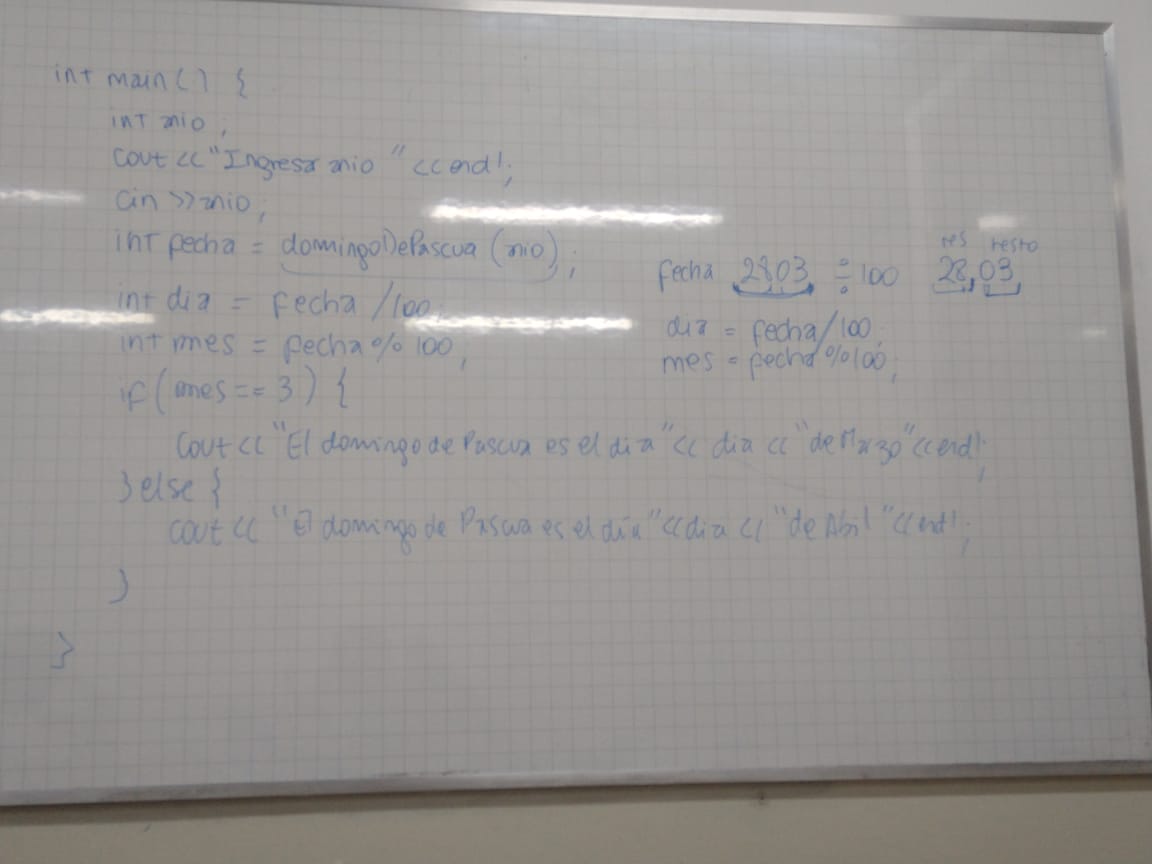 int main() {
int anio;
cout << "Ingresar anio" << endl;
cin >> anio;
int fecha = domingoDePascua (anio);
int dia = fecha /100;
int mes = fecha % 100;
if (mes == 3) {
cout << "El domingo de Pascua es el dia" << dia << "de Marzo" << endl;
} else {
cout << "El domingo de Pascua es el dia" << dia << "de Abril" << endl;
}
}
res resto
fecha 2803 ÷ 100 28,03
dia = fecha/100;
mes = fecha % 100;